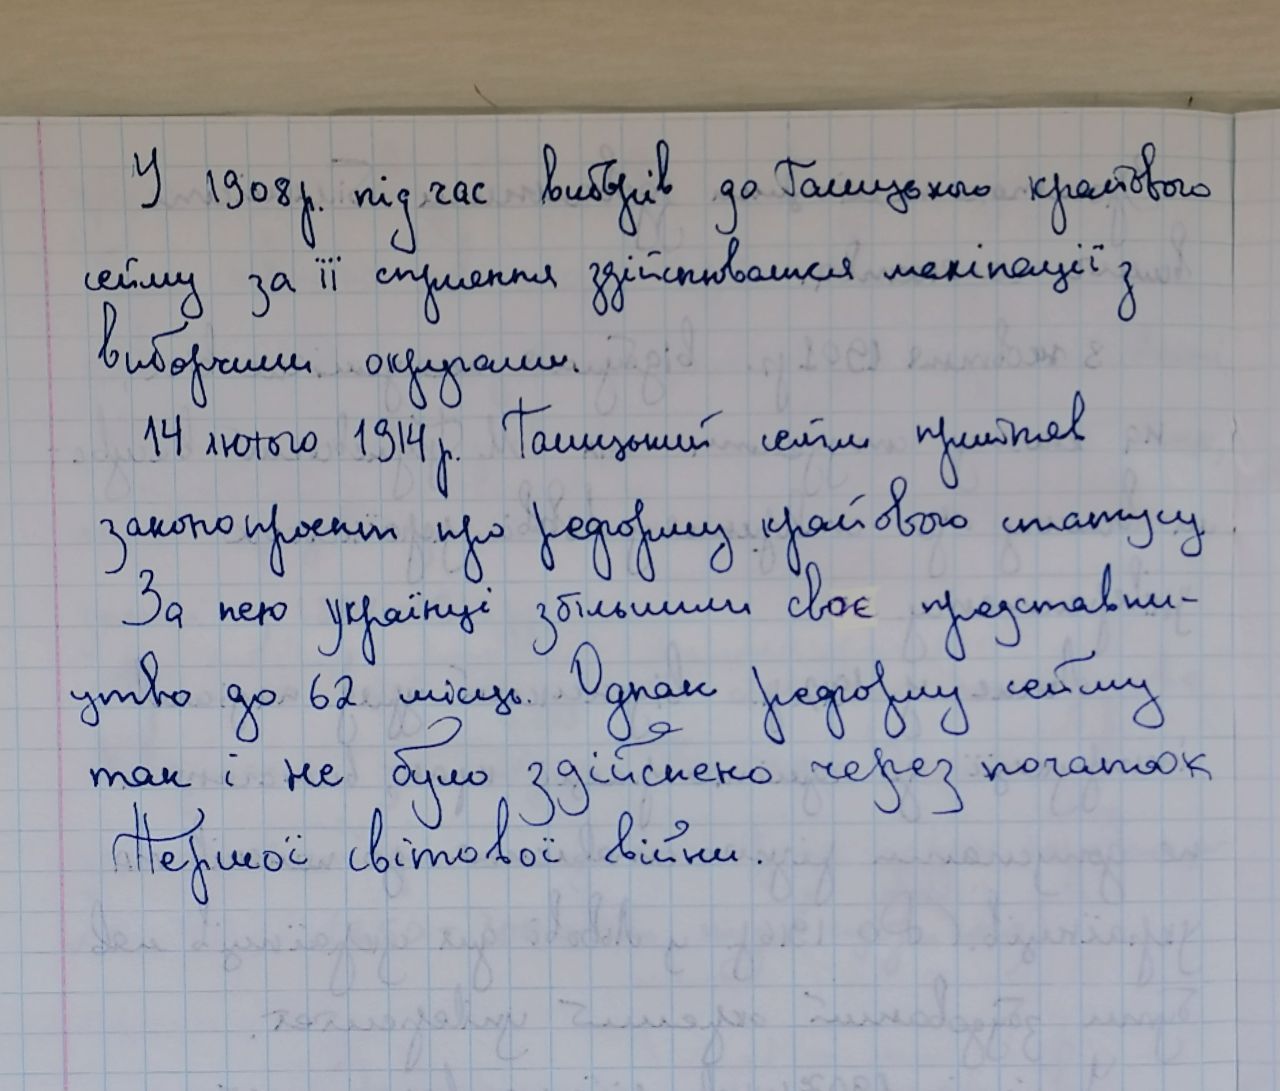 У 1908р. під час виборів до Галицького крайового
сейму за її сприяння здійснювалися маніпеляції з
виборчими округами.
14 лютого 1914р. Галицький сейм прийняв
законопроєкт про реформу крайового статусу
За нею українці збільшили своє представни-
цтво до 62 місць. Однак реформу сейму
так і не було здійснено через початок
Першої світової війни.